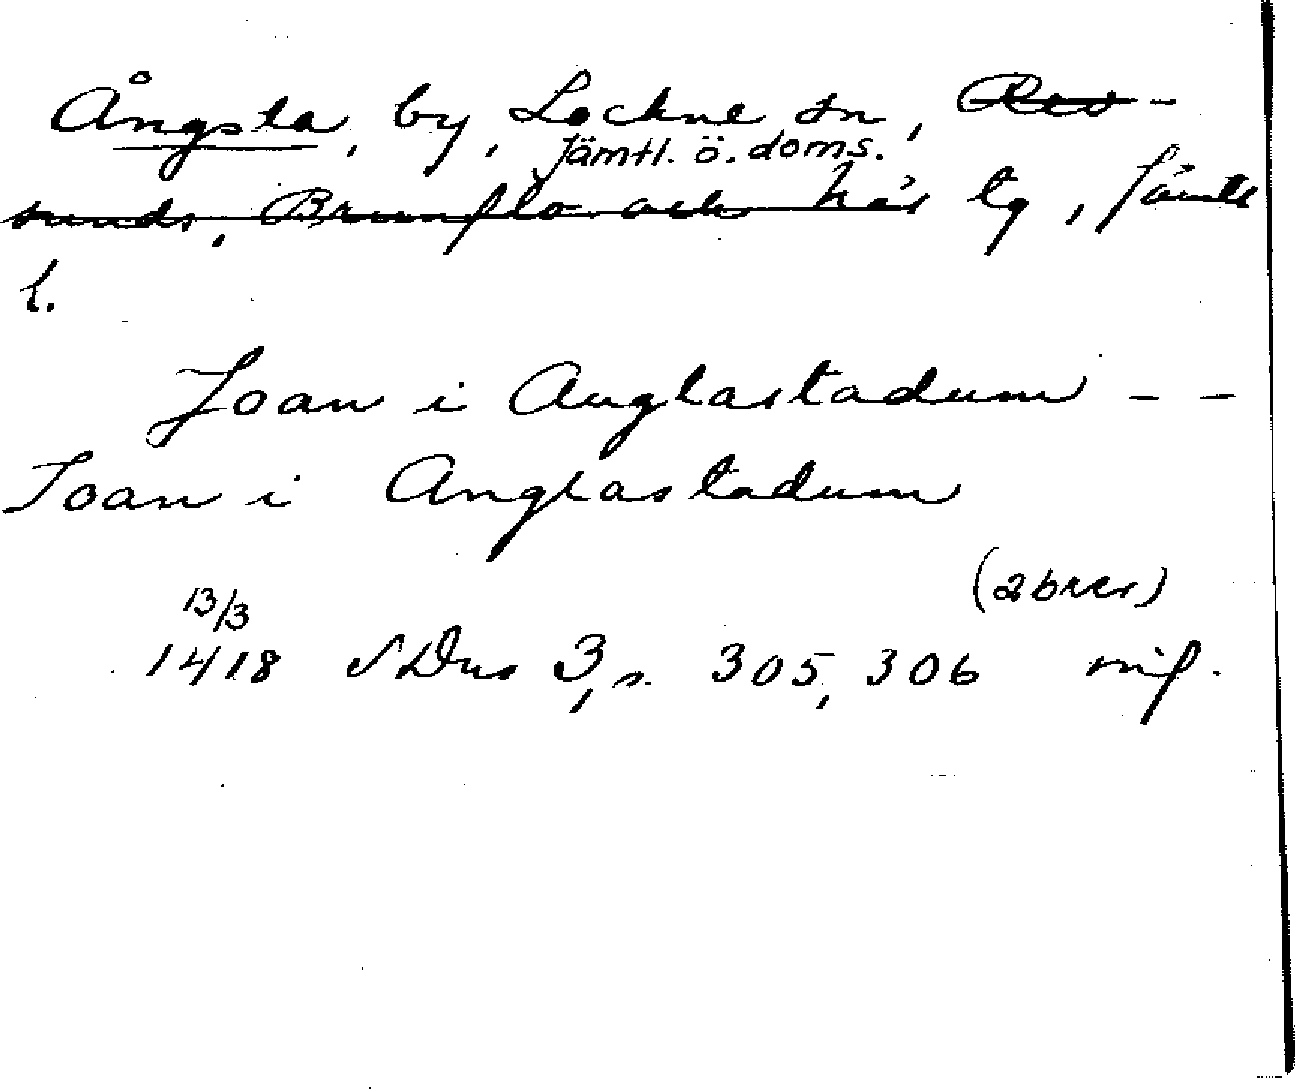 Ångsta, by, Lockne sn, Rev-
Jämtl. ö. doms.
sunds, Brunflo och Näs tg, Jämtl
l.
Joan i Anglastadum - -
Joan i Anglastadum
(2 brev)
13/3
1418 SDns 3, s. 305, 306 mf.